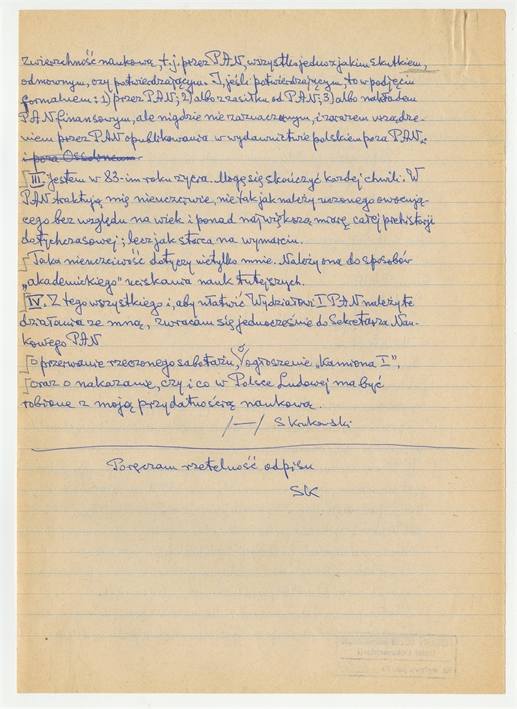 zwierzchność naukową, t.j. przez PAN, wszystko jedno z jakim skutkiem,
odmownym, czy potwierdzającym. I, jeśli potwierdzającym, to w podjęciu
formalnem: 1) przez PAN; 2) albo z zasiłku od PAN; 3) albo nakładem
PAN finansowym, ale nigdzie nie zaznaczonym, i zarazem urządze-
niem przez PAN opublikowania w wydawnictwie polskiem poza PAN.
i poza Ossolineum
III. Jestem w 83-im roku życia. Mogę się skończyć każdej chwili. W
PAN traktują mię nieuczciwie, nie tak jak należy uczonego owocują-
cego bez względu na wiek i ponad największą miarę całej prehistorji
dotychczasowej; lecz jak starca na wymarciu.
Taka nieuczciwość dotyczy nietylko mnie. Należy ona do sposobów
„akademickiego” uciskania nauk tutejszych.
IV. Z tego wszystkiego i, aby ułatwić Wydziałowi I PAN należyte
działania ze mną, zwracam się jednocześnie do Sekretarza Nau-
kowego PAN
o przerwanie rzeczonego sabotażu, o ogłoszenie „Kamiona I”,
oraz o nakazanie, czy i co w Polsce Ludowej ma być
robione z moją przydatnością naukową.
/—/ S Krukowski
Poręczam rzetelność odpisu
SK